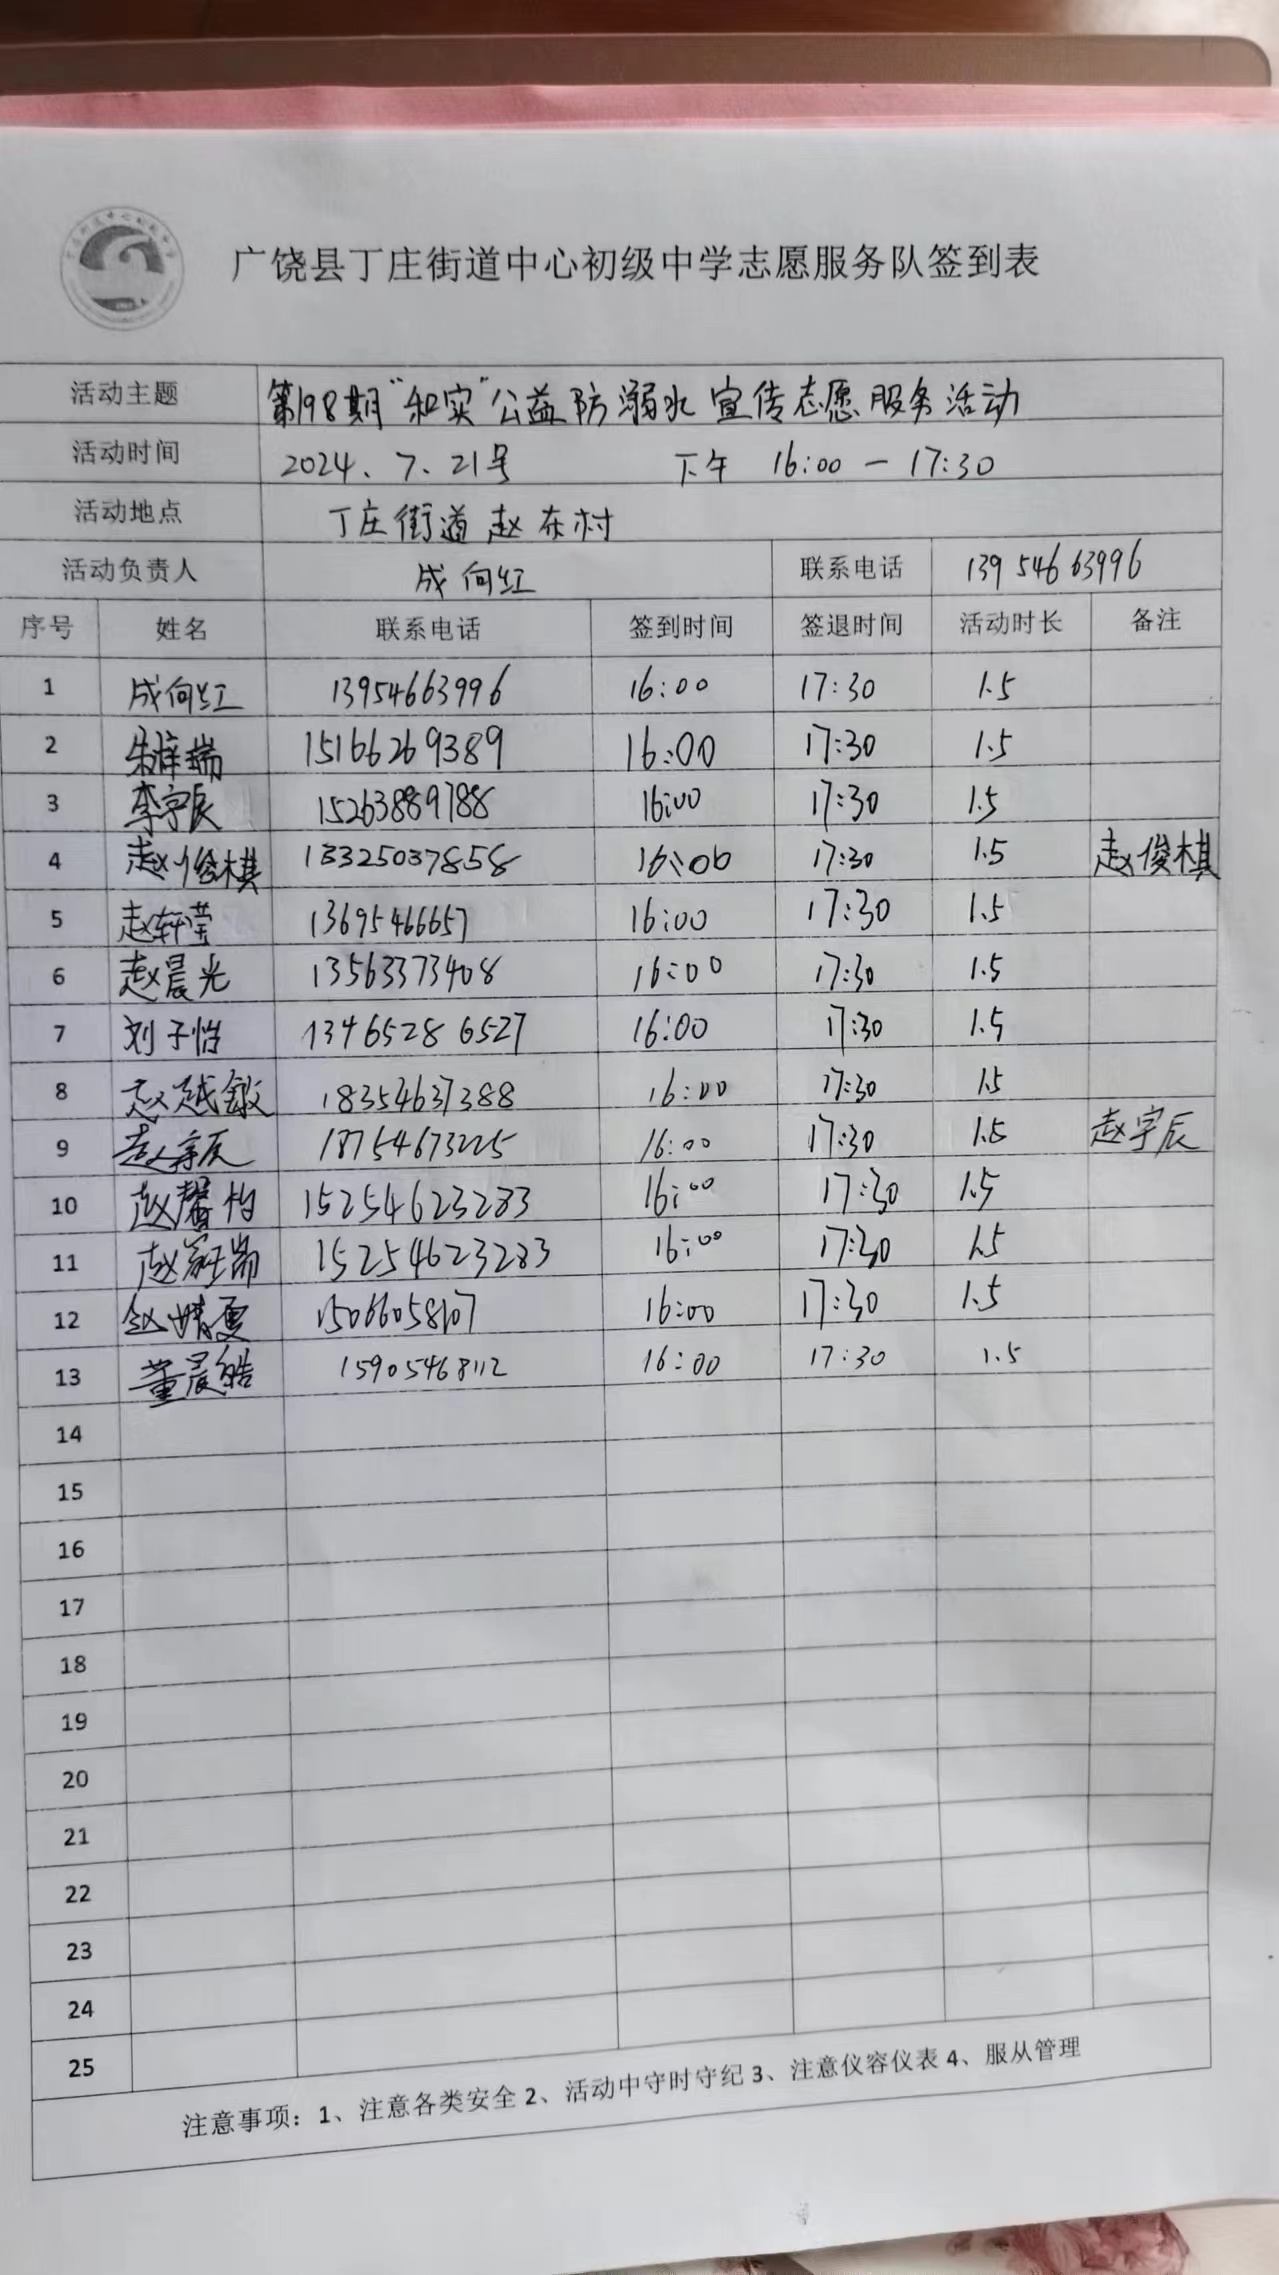 广饶县丁庄街道中心初级中学志愿服务队签到表
活动主题 第198期"和实"公益防溺水宣传志愿服务活动
活动时间 2024.7.21号 下午 16:00—17:30
活动地点 丁庄街道赵东村
活动负责人 成向红 联系电话 13954663996
序号 姓名 联系电话 签到时间 签退时间 活动时长 备注
1 成向红 13954663996 16:00 17:30 1.5
2 朱梓瑞 15166269389 16:00 17:30 1.5
3 李宇辰 15263889788 16:00 17:30 1.5
4 赵俊棋 18325037858 16:00 17:30 1.5 赵俊棋
5 赵轩莹 13695466657 16:00 17:30 1.5
6 赵晨光 13563373408 16:00 17:30 1.5
7 刘子怡 13465286527 16:00 17:30 1.5
8 赵越敏 18354637388 16:00 17:30 1.5
9 赵宇辰 18754673225 16:00 17:30 1.5 赵宇辰
10 赵馨怡 15254623283 16:00 17:30 1.5
11 赵 15254623283 16:00 17:30 1.5
12 赵婧夏 15066058107 16:00 17:30 1.5
13 董晨皓 15905468112 16:00 17:30 1.5
14
15
16
17
18
19
20
21
22
23
24
25
注意事项：1、注意各类安全 2、活动中守时守纪 3、注意仪容仪表 4、服从管理